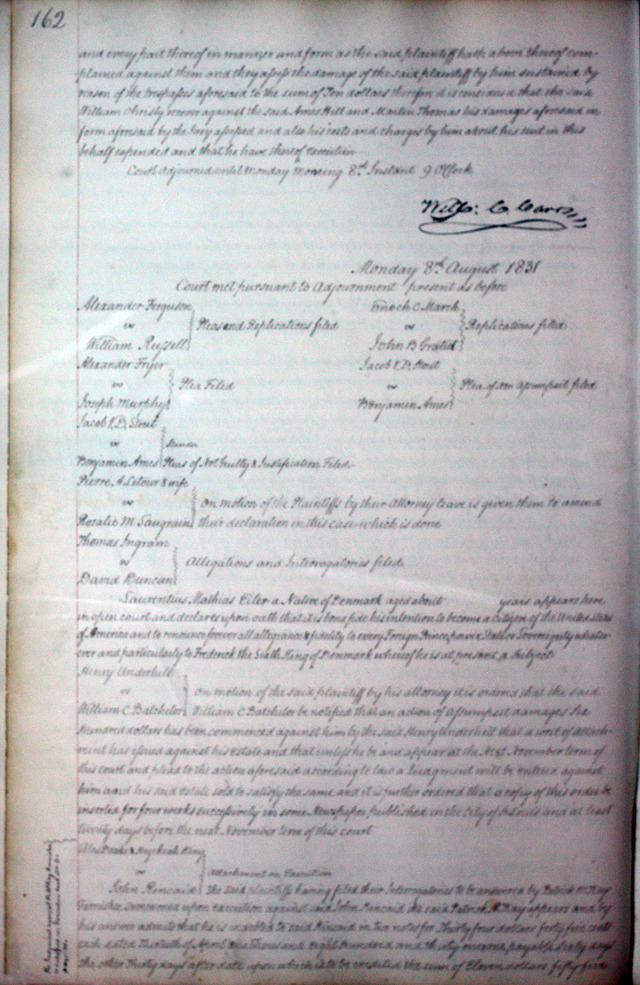 162
and every part thereof in manner and form as the said plaintiff hath above thereof com-
plained against them and they assess the damage of the said plaintiff by him sustained by
reason of the trespasses aforesaid to the sum of Ten dollars therefore it is considered that the said
William Christy recover against the said Ames Hill and Martin Thomas his damages aforesaid in
form aforesaid by the Jury assessed and also his costs and charges by him about his suit in this
behalf expended and that he have thereof execution
Court Adjourned until Monday Morning 8th Instant 9 OClock
Monday 8th August 1831
Court met pursuant to Adjournment present as before
Alexander Ferguson
vs Pleas and Replications filed
William Russell
Enoch C March
vs Replications filed
John B
Alexander Fryer
vs Plea Filed
Joseph Murphy
Jacob
vs Plea of non assumpsit filed
Benjamin Ames
Jacob
vs Slander
Benjamin Ames Pleas of Not Guilty & Justification Filed
Pierre A & wife
vs On motion of the Plaintiffs by their Attorney leave is given them to amend
Rosalie M Saugrain their declaration in this case which is done
Thomas Ingram
vs Allegations and Interrogatories filed
David Duncan
Laurentius Mathias Eiler a Native of Denmark aged about years appears here
in open court and declares upon oath that it is bona fide his intention to become a citizen of the United States
of America and to renounce forever all allegiance & fidelity to every Foreign Prince, power, State or Sovereignty whatso-
ever and particularly to Frederick the Sixth King of Denmark whereof he is at present a Subject
Henry Underhill
vs On motion of the said plaintiff by his attorney it is ordered that the said
William C Batchelor William C Batchelor be notified that an action of Assumpsit damages Six
Hundred dollars has been commenced against him by the said Henry Underhill that a writ of attach-
ment has issued against his Estate and that unless he be and appear at the Next November term of
this court and plead to the action aforesaid according to law a Judgment will be entered against
him and his said estate sold to satisfy the same and it is further ordered that a copy of this order be
inserted for four weeks successively in some Newspaper published in the City of St Louis and at least
twenty days before the next November term of this court
vs Attachment on Execution
John Kincaid the said plaintiffs having filed their Interrogatories to be answered by Patrick M Kay
Garnishee summoned upon execution against said John Kincaid the said Patrick M Kay appears and by
his answer admits that he is indebted to said Kincaid in two notes for Thirty four dollars forty five cents
each dated Thirtieth of April one Thousand eight hundred and thirty one one payable sixty days
the other Thirty days after date upon which is to be credited the sum of Eleven dollars fifty five